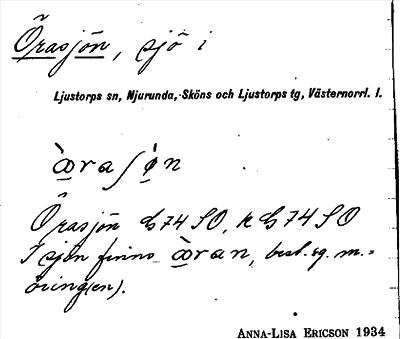 Örasjön, sjö i
Ljustorps sn, Njurunda, Sköns och Ljustorps tg, Västernorrl. l.
Örasjön G74 SO, k G74 SO
I sjön finns
best. sg. m. =
öring(en).
ANNA-LISA ERICSON 1934